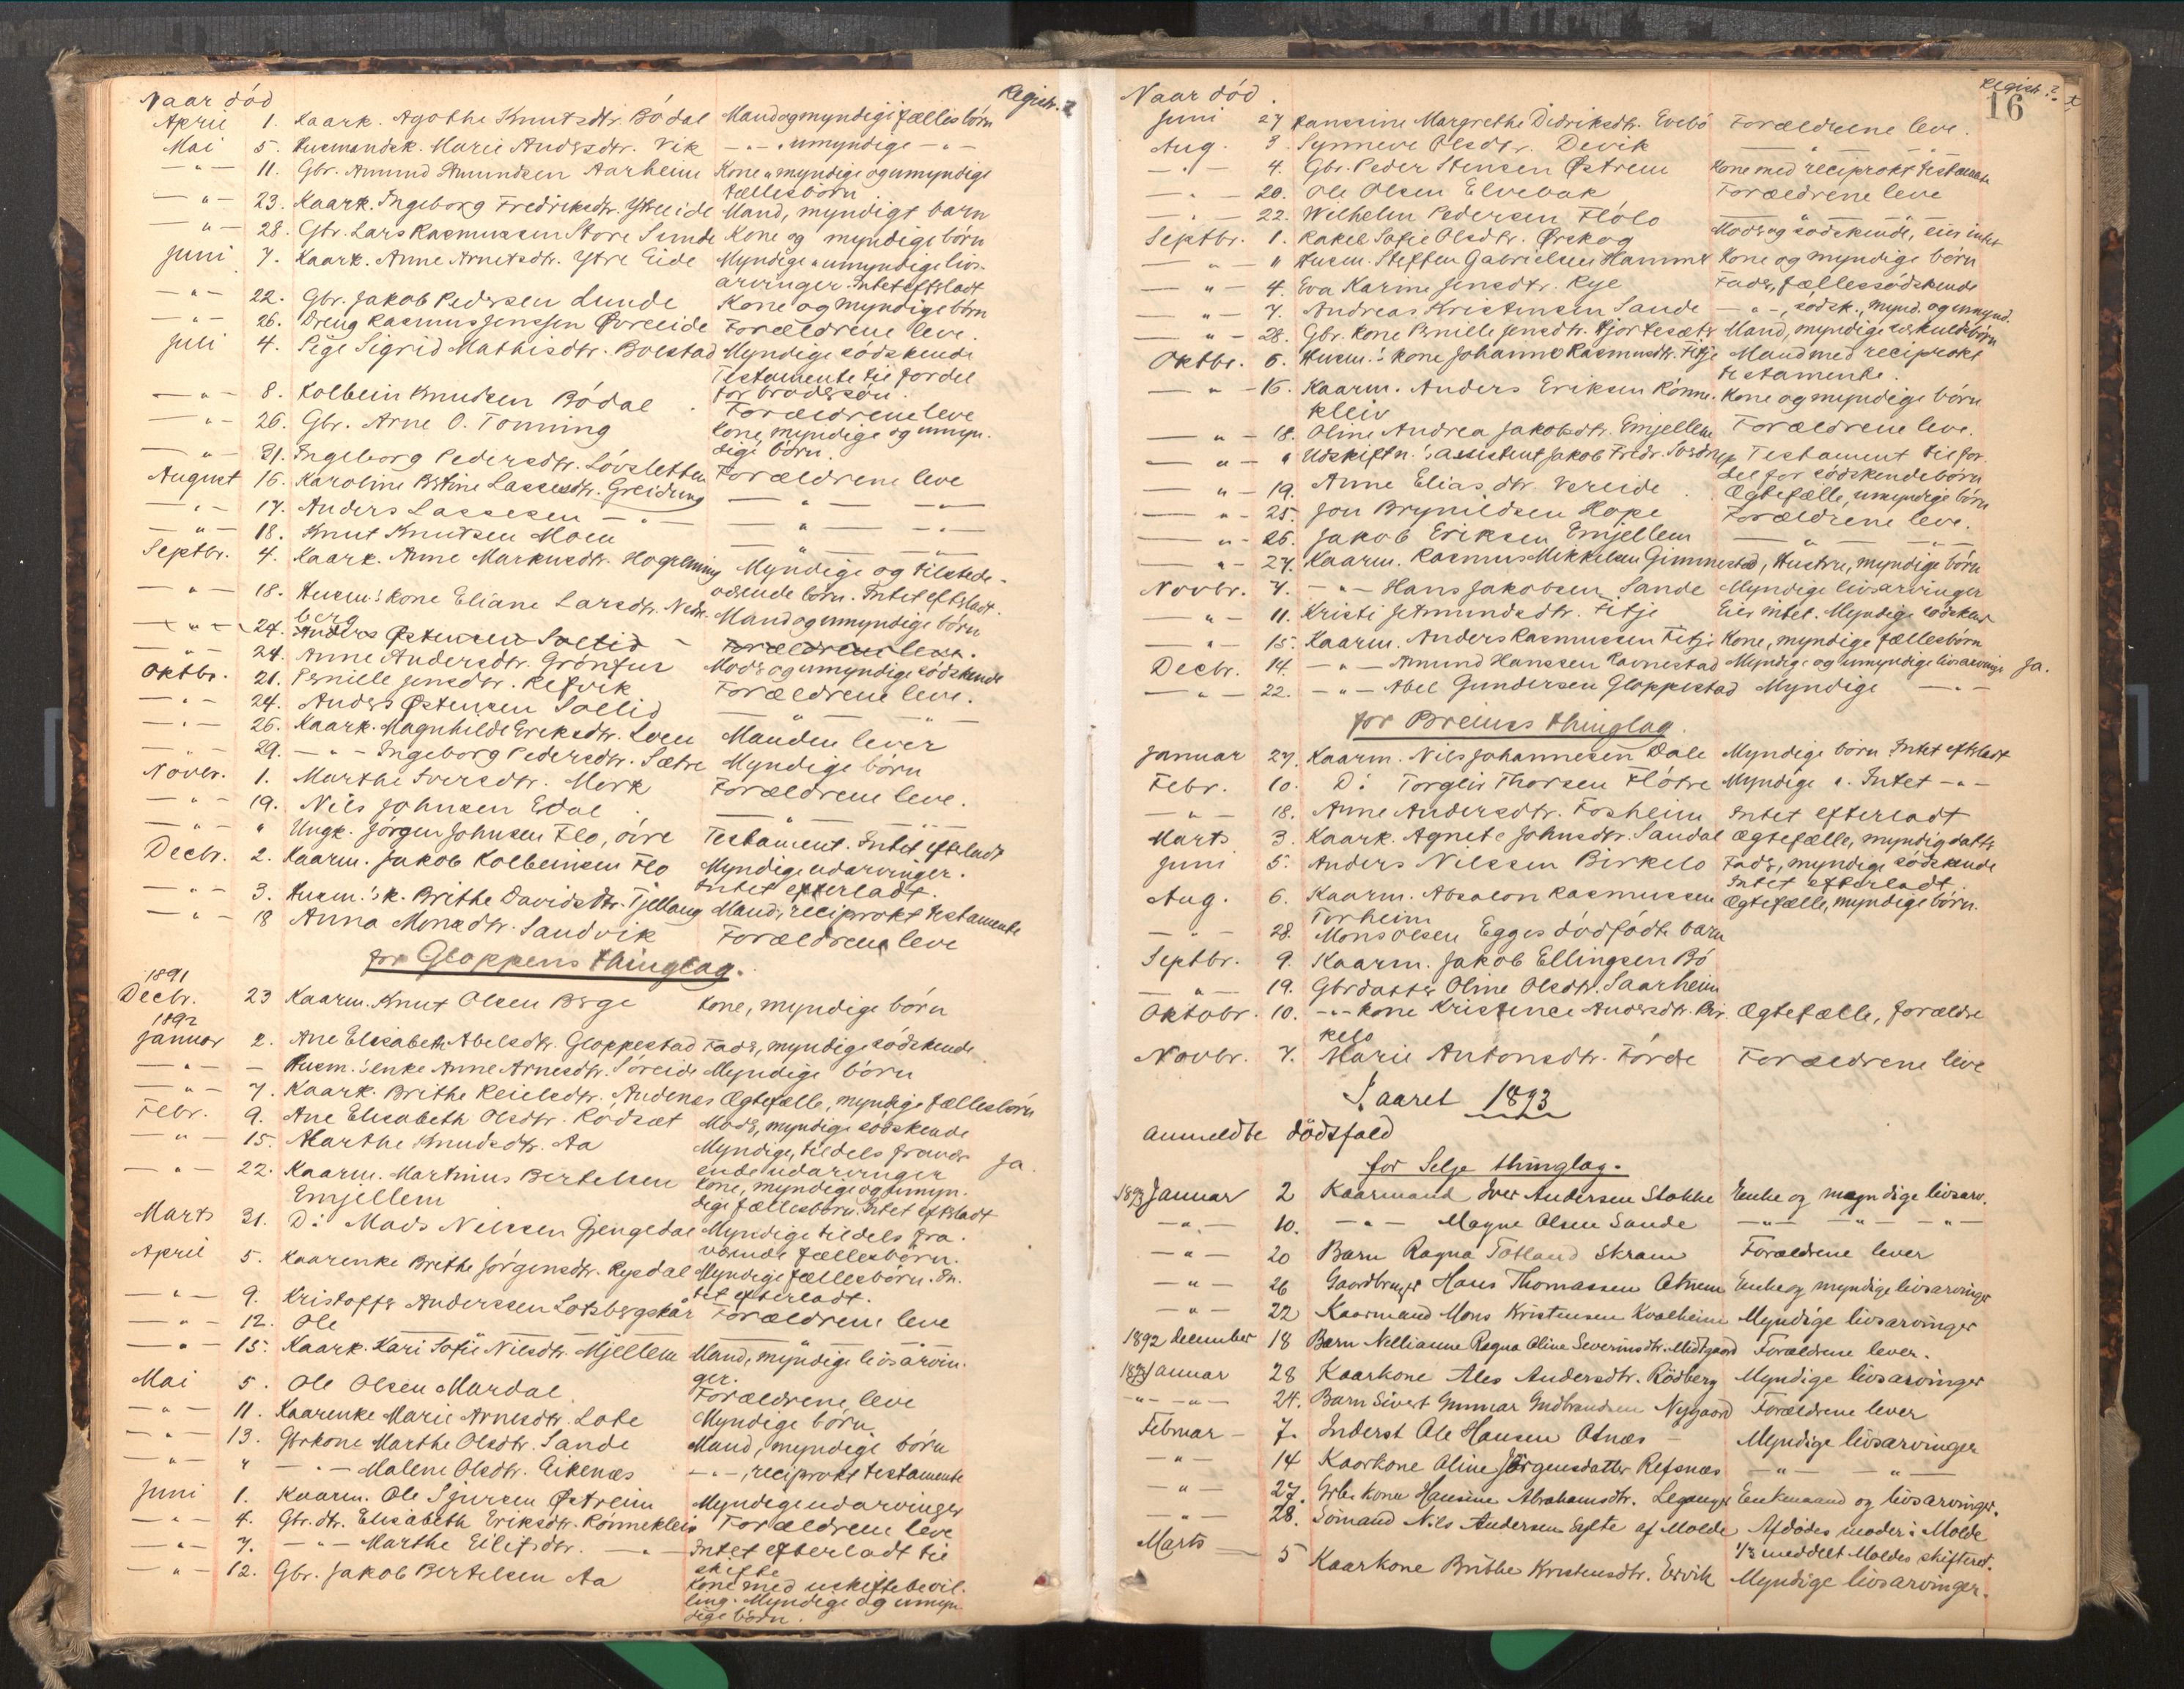 Naar död Registr.?
April 1. Kaark. Agathe Knutsdtr. Bödal Mand og myndige fællesbörn
Mai 5. Husmandsk. Marie Andersdtr. Vik — " — umyndige — " —
— " — 11. Gbr. Amund Amundsen Aarheim Kone, myndige og umyndige
fællesbörn
— " — 23. Kaark. Ingeborg Fredriksdtr. Ytreeide Mand, myndigt barn
— " — 28. Gbr. Lars Rasmussen Store Sunde Kone og myndige börn
Juni 7. Kaark. Anne Arnetsdtr. Ytre Eide Myndige, umyndige livs-
arvinger. Intet efterladt
— " — 22. Gbr. Jakob Pedersen Lunde Kone og myndige börn
— " — 26. Dreng Rasmus Jenssen Övreeide Forældrene leve.
Juli 4. Pige Sigrid Mathisdtr. Bolstad Myndige södskende
Testamente til fordel
for brodersön.
— " — 8. Kolbein Knudsen Bödal Forældrene leve
— " — 26. Gbr. Arne O. Tonning Kone, myndige og umyn-
dige börn.
— " — 31. Ingeborg Pedersdtr. Lövsletten Forældrene leve
August 16. Karoline Bertine Lassesdtr. Greidung — " — — " —
— " — 17. Anders Lassesen — " — — " — — " —
— " — 18. Knut Knudsen Moen — " — — " —
Septbr. 4. Kaark. Anne Markusdtr. Hogrenning Myndige og tilstede-
værende börn. Intet efterladt.
— " — 18. Husm.s kone Eliane Larsdtr. Nedr- Mand og umyndige börn
berg
— " — 24. Anders Østensen Sollid Forældrene leve.
— " — 24. Anne Andersdtr. Grönfur Moder og umyndige södskende
Oktbr. 21. Pernille Jensdtr. Refvik Forældrene leve.
— " — 24. Anders Østensen Sollid — " — — " —
— " — 26. Kaark. Magnhilde Eriksdtr. Loen Manden lever
— " — 29. — " — Ingeborg Pedersdtr. Sætre Myndige börn
Novbr. 1. Marthe Iversdtr. Mork Forældrene leve.
— " — 19. Nils Johnsen Edal — " — — " —
— " — " Ungk. Jörgen Johnsen Flo, öire Testament. Intet efterladt
Decbr. 2. Kaarm. Jakob Kolbeinsen Flo Myndige udarvinger.
Intet efterladt.
— " — 3. Husm.s k. Brithe Davidsdtr. Tjellaug Mand, reciprokt testamente
— " — 18 Anna Monsdtr. Sandvik Forældrene leve
for Gloppens thinglag.
1891
Decbr. 23 Kaarm. Knut Olsen Berge Kone, myndige börn
1892
Januar 2. Ane Elisabeth Abelsdtr. Gloppestad Fader, myndige södskende
— " — — Husm.s enke Anne Arnesdtr. Söreide Myndige börn
— " — 7. Kaark. Brithe Reielsdtr. Andenes Ægtefælle, myndige fællesbörn
Febr. 9. Ane Elisabeth Olsdtr. Rödsæt Moder, myndige södskende
— " — 15. Marthe Knudsdtr. Aa Myndige, tildels fravær- Ja.
ende udarvinger
— " — 22. Kaarm. Martinus Bertelsen Kone, myndige og umyn-
Emjellem dige fællesbörn. Intet efterladt
Marts 31. Do Mads Nilssen Gjengedal Myndige tildels fra-
værende fællesbörn.
April 5. Kaarenke Brithe Jörgensdtr. Rysdal Myndige fællesbörn. In-
tet efterladt.
— " — 9. Kristoffer Anderssen Lotsbergskar Forældrene leve
— " — 12. Ole — " — — " — — " —
— " — 15. Kaark. Kari Sofie Nilsdtr. Mjellem Mand, myndige livsarvin-
ger.
Mai 5. Ole Olsen Mardal Forældrene leve
— " — 11. Kaarenke Marie Arnesdtr. Lote Myndige börn
— " — 13. Gbrkone Marthe Olsdtr. Sande Mand, myndige börn
— " — " — " — Malene Olsdtr. Eikenæs — " —, reciprokt testamente
Juni 1. Kaarm. Ole Sjursen Østreim Myndige udarvinger
— " — 4. Gbr. dtr. Elisabeth Eriksdtr. Rönnekleiv Forældrene leve
— " — 7. — " — Marthe Eilifsdtr. — " — Intet efterladt til
skifte
— " — 12. Gbr. Jakob Bertelsen Aa Kone med uskiftebevil-
ling. Myndige og umyn-
dige börn.
Naar död. Registr.?
16
Juni 27 Hanssine Margrethe Didriksdtr. Evebö Forældrene leve.
Aug. 3. Synneve Olsdtr. Devik — " — — " —
— " — 4. Gbr. Peder Stensen Østrem Kone med reciprokt testamente
— " — 20. Ole Olsen Elvebak Forældrene leve
— " — 22. Wilhelm Pedersen Flölo — " — — " —
Septbr. 1. Rakel Sofie Olsdtr. Ørskog Moder og södskende, eier intet
— " — " Husm. Steffen Gabrielsen Hamnes Kone og myndige börn
— " — 4. Eva Karine Jensdtr. Rye Fader, fællessödskende
— " — 7. Andreas Kristensen Sande — " —, södsk., mynd. og umynd.
— " — 28. Gbr. kone Pernille Jensdtr. Hjortesæter Mand, myndige særkuldsbörn
Oktbr. 6. Husm.s kone Johanne Rasmusdtr. Fitje Mand med reciprokt
testamente.
— " — 16. Kaarm. Anders Eriksen Rönne- Kone og myndige börn
kleiv
— " — 18. Oline Andrea Jakobsdtr. Emjellem Forældrene leve.
— " — " Udskiftn.s assistent Jakob Fredr. Testament til for-
del for södskendebörn
— " — 19. Anne Eliasdtr. Vereide Ægtefælle, umyndige börn
— " — 25. Jon Brynildsen Hope Forældrene leve.
— " — 26. Jakob Eriksen Emjellem — " — — " —
— " — 27. Kaarm. Rasmus Mikkelsen Gimmestad, Hustru, myndige börn
Novbr. 7. — " — Hans Jakobsen Sande Myndige livsarvinger
— " — 11. Kristi Jetmundsdtr. Fitje Eier intet. Myndige södskende
— " — 15. Kaarm. Anders Rasmussen Fitje Kone, myndige fællesbörn
Decbr. 14. — " — Amund Hanssen Ravnestad Myndige og umyndige livsarvinger Ja.
— " — 22. — " — Abel Gundersen Gloppestad Myndige — " —
for Breims thinglag.
Januar 27. Kaarm. Nils Johannesen Dale Myndige börn Intet efterladt
Febr. 10. Do Torgeir Thorsen Flötre Myndige ". Intet — " —
— " — 18. Anne Andersdtr. Fosheim Intet efterladt
Marts 3. Kaark. Agnete Johnsdtr. Sandal Ægtefælle, myndig datter
Juni 5. Anders Nilssen Birkelo Fader, myndige södskende
Intet efterladt.
Aug. 6. Kaarm. Absalon Rasmussen Ægtefælle, myndige börn.
Forheim
— " — 28. Mons Olsen Egges dödfödte barn
Septbr. 9. Kaarm. Jakob Ellingsen Bö
— " — 19. Gbrdatter Oline Olsdtr. Saarheim
Oktobr. 10. — " — kone Kristence Andersdtr. Bir- Ægtefælle, forældre
kelo
Novbr. 7. Marie Antonsdtr. Förde Forældrene leve
I aaret 1893
anmeldte dödsfald
for Selje thinglag.
1893 Januar 2 Kaarmand Iver Andersen Stokke Enke og myndige livsarv.
— " — 10. — " — Magne Olsen Sande — " — — " — — " —
— " — 20 Barn Ragna Totland Skram Forældrene lever
— " — 26 Gaardbruger Hans Thomassen Otnem Enke og myndige livsarvinger
— " — 22 Kaarmand Mons Kristensen Kvalheim Myndige livsarvinger
1892 december 18 Barn Nellianne Ragna Oline Severinsdtr. Midtgaard Forældrene lever.
1893 Januar 28 Kaarkone Ales Andersdtr. Rödberg Myndige livsarvinger
— " — 24. Barn Sivert Gunnar Gudbrandsen Nygaard Forældrene lever
Februar — 7. Inderst Ole Hansen Otnæs — Myndige livsarvinger
— " — 14 Kaarkone Oline Jörgensdatter Refsnæs — " — — " —
— " — 27. Grbr. kone Hansine Abrahamsdtr. Leganger Enkemand og livsarvinger.
— " — 28. Sömand Nils Andersen Sylte af Molde Afdödes moder i Molde
1/3 meddelt Moldes skifteret.
Marts — 5 Kaarkone Brithe Kristensdtr. Ervik Myndige livsarvinger.